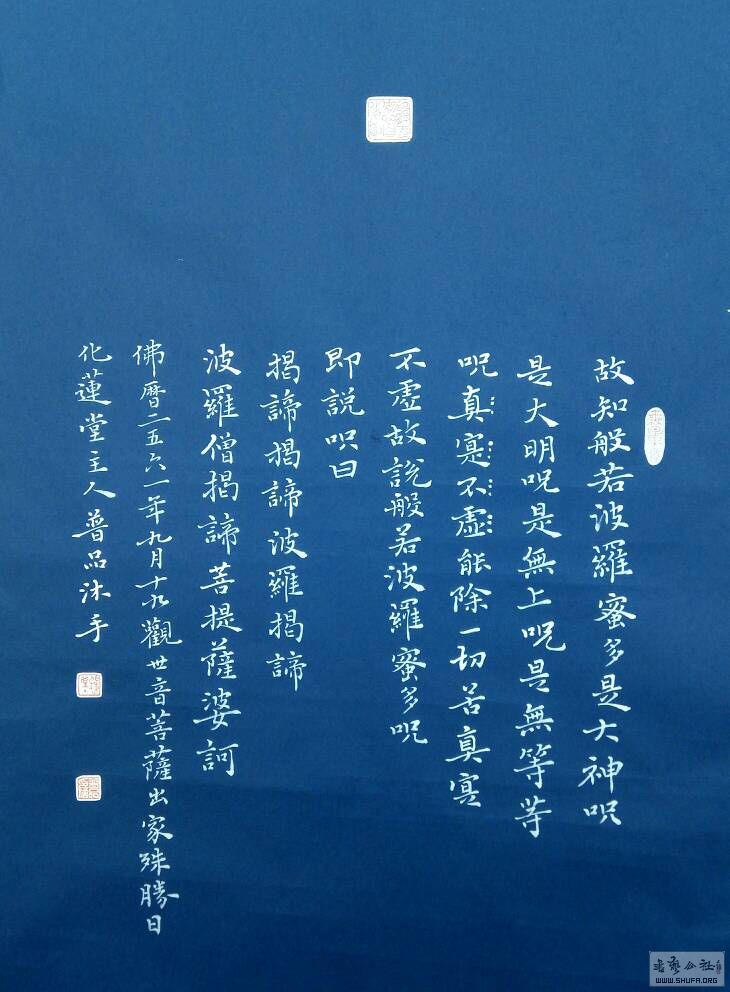 故知般若波羅蜜多是大神呪
是大明呪是無上呪是無等等
呪真寔不虛能除一切苦真寔
不虛故說般若波羅蜜多呪
即說呪曰
揭諦揭諦波羅揭諦
波羅僧揭諦菩提薩婆訶
佛曆二五六一年九月十九觀世音菩薩出家殊勝日
化蓮堂主人普品沐手
書藝公社
WWW.SHUFA.ORG